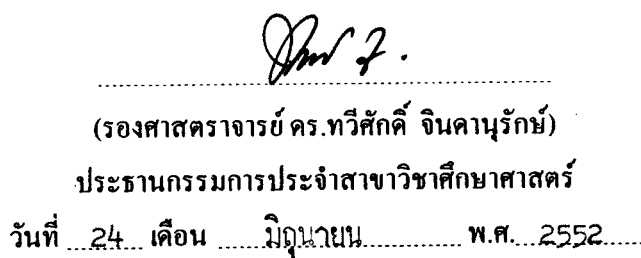 (รองศาสตราจารย์ ดร.ทวีศักดิ์ จินดานุรักษ์)
ประธานกรรมการประจำสาขาวิชาศึกษาศาสตร์
วันที่ 24 เดือน มิถุนายน พ.ศ. 2552